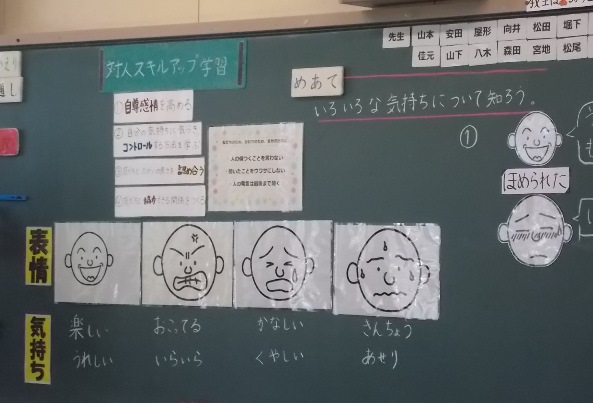 先生 山本 安田 屋形 向井 松田 堀下
佳元 山下 八木 森田 宮地 松尾
対人スキルアップ学習
めあて
いろいろな気持ちについて知ろう。
①自尊感情を高める
②自分の気持ちに気づき
コントロールする方法を学ぶ
認め合う
人の傷つくことを言わない
人の発言は最後まで聞く
①
ほめられた
表情
気持ち
楽しい おこってる かなしい きんちょう
うれしい いらいら くやしい あせり